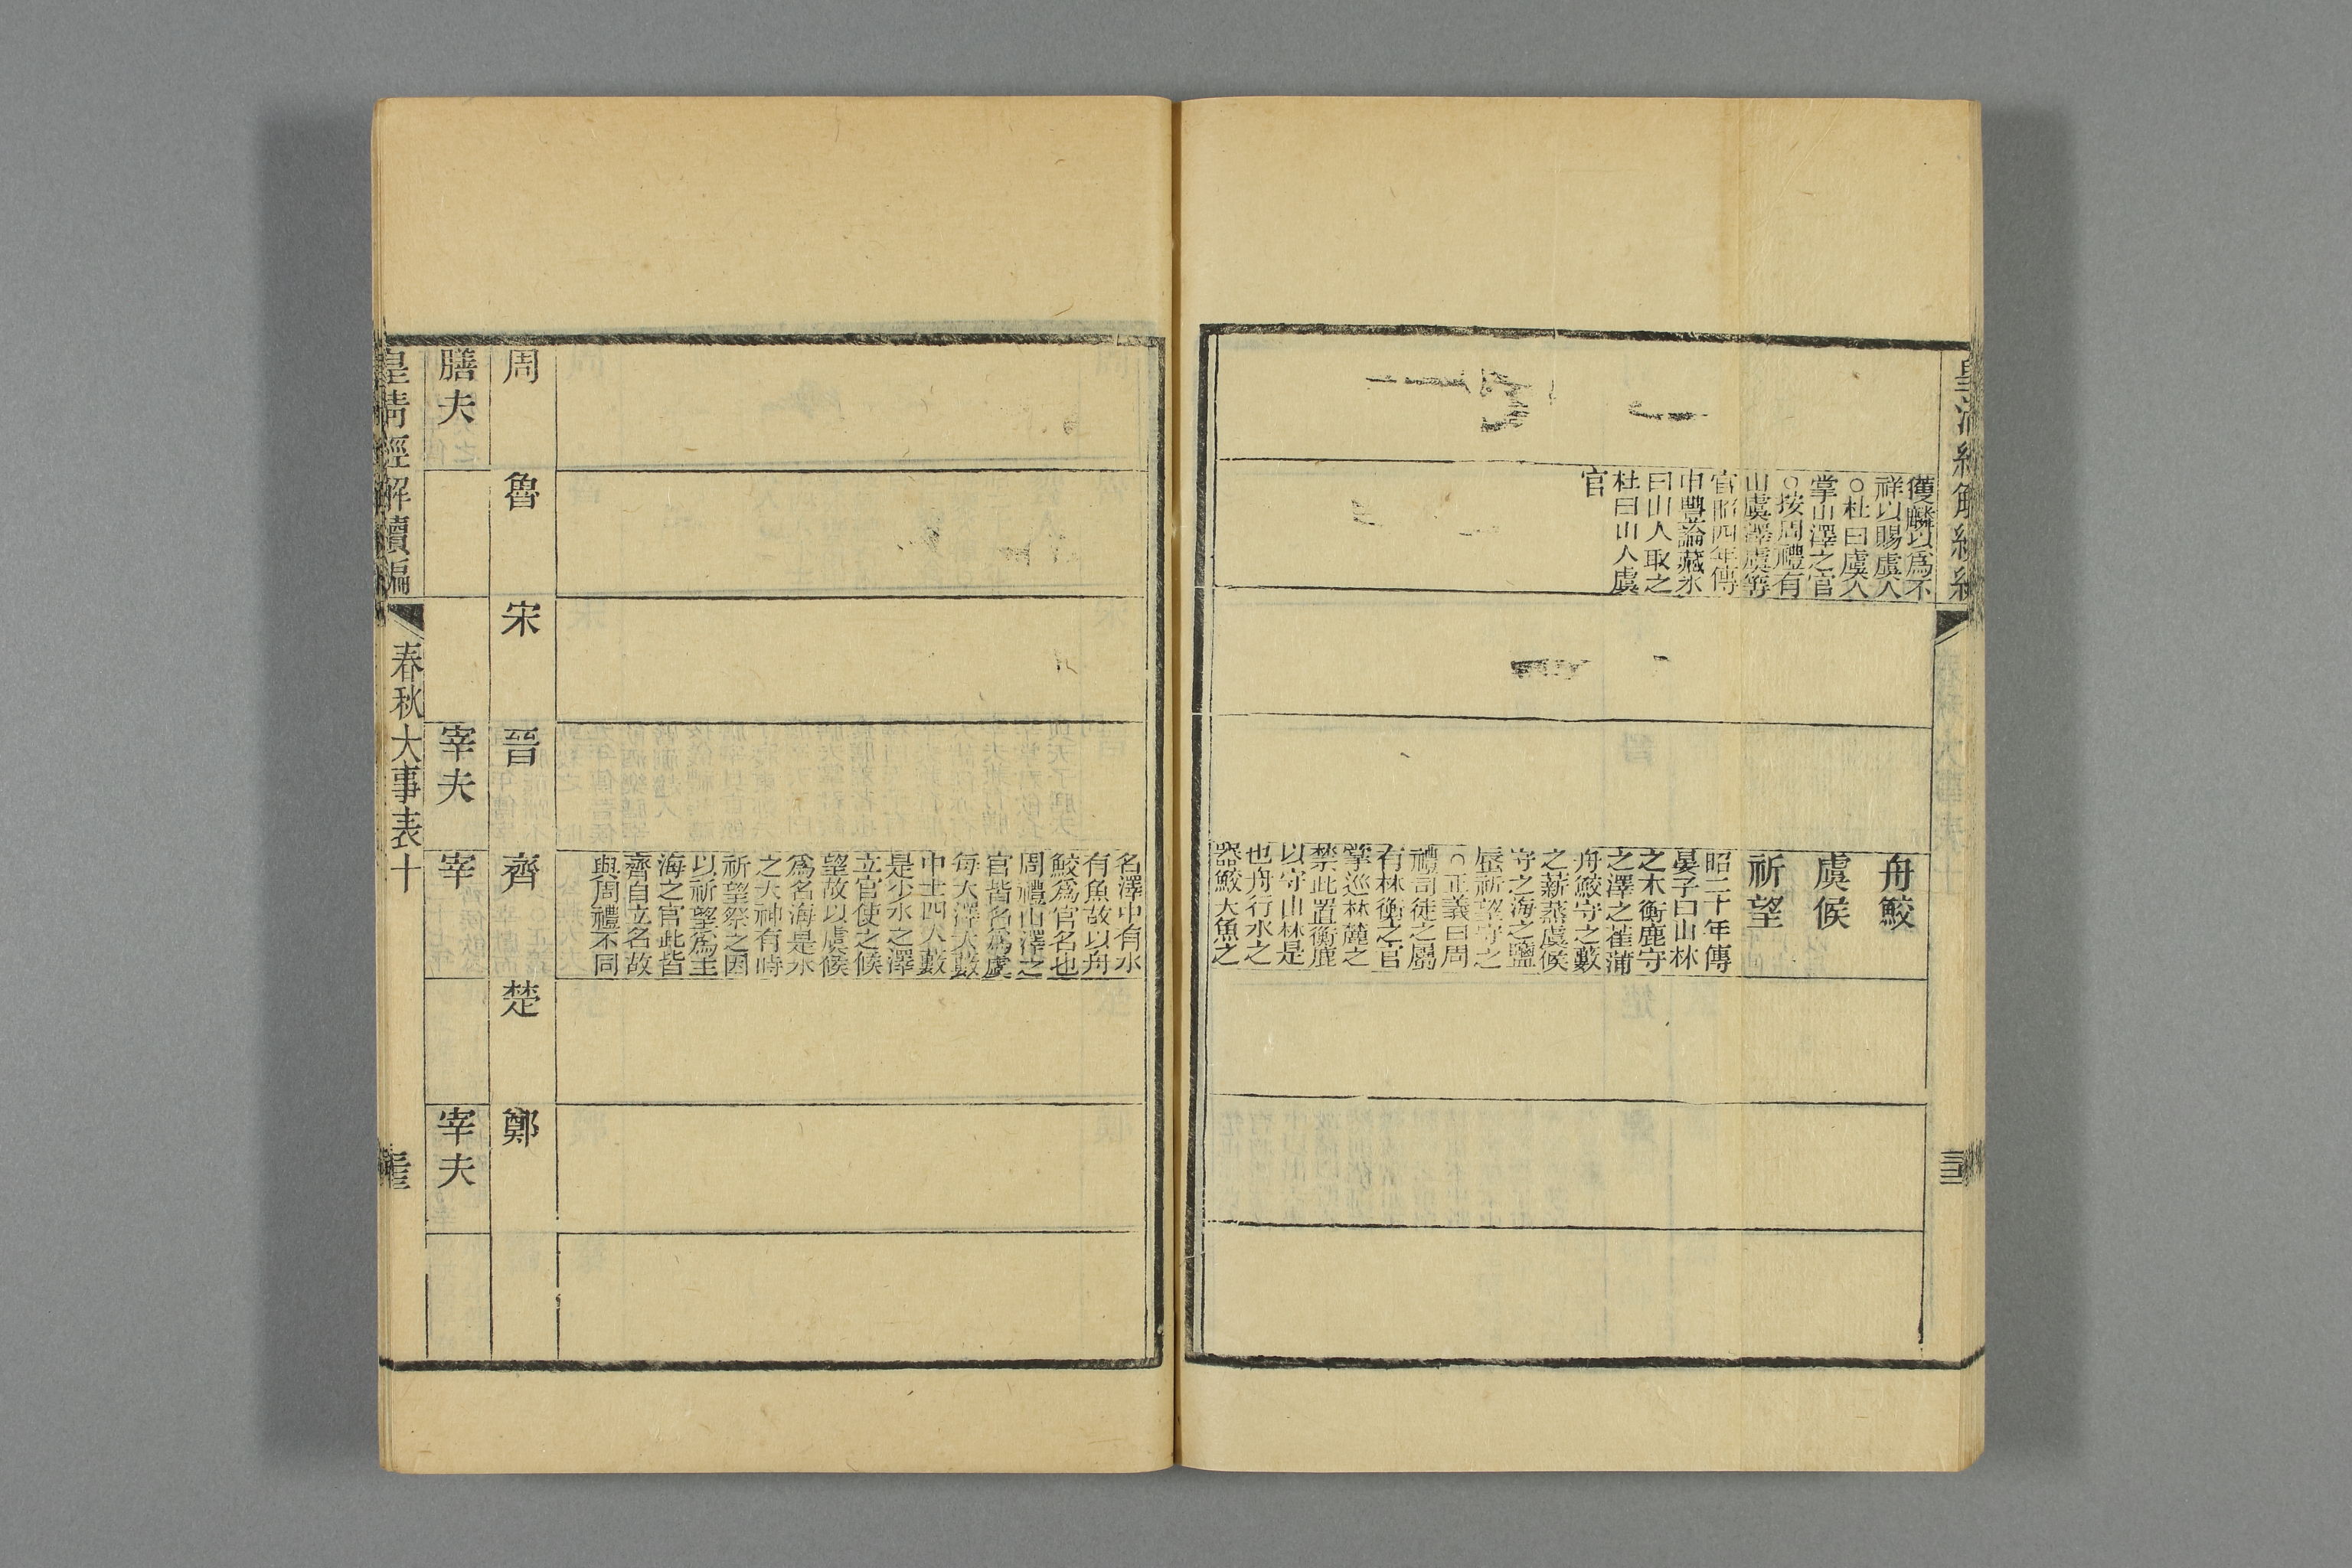 獲麟以爲不
祥以賜虞人
○杜曰虞人
掌山澤之官
○按周禮有
山虞澤虞等
官昭四年傳
申豐論藏氷
曰山人取之
杜曰山人虞
官
舟鮫
虞候
祈望
昭二十年傳
晏子曰山林
之木衡鹿守
之澤之萑蒲
舟鮫守之藪
之薪蒸虞候
守之海之鹽
蜃祈望守之
○正義曰周
禮司徒之屬
有林衡之官
掌巡林麓之
禁此置衡鹿
以守山林是
也舟行水之
器鮫大魚之
名澤中有水
有魚故以舟
鮫爲官名也
周禮山澤之
官皆名爲虞
每大澤大藪
中士四人藪
是少水之澤
立官使之候
望故以虞候
爲名海是水
之大神有時
祈望祭之因
以祈望爲主
海之官此皆
齊自立名故
與周禮不同
周
魯
宋
晉
齊
楚
鄭
膳夫
宰夫
宰
宰夫
皇清經解續編
春秋大事表十